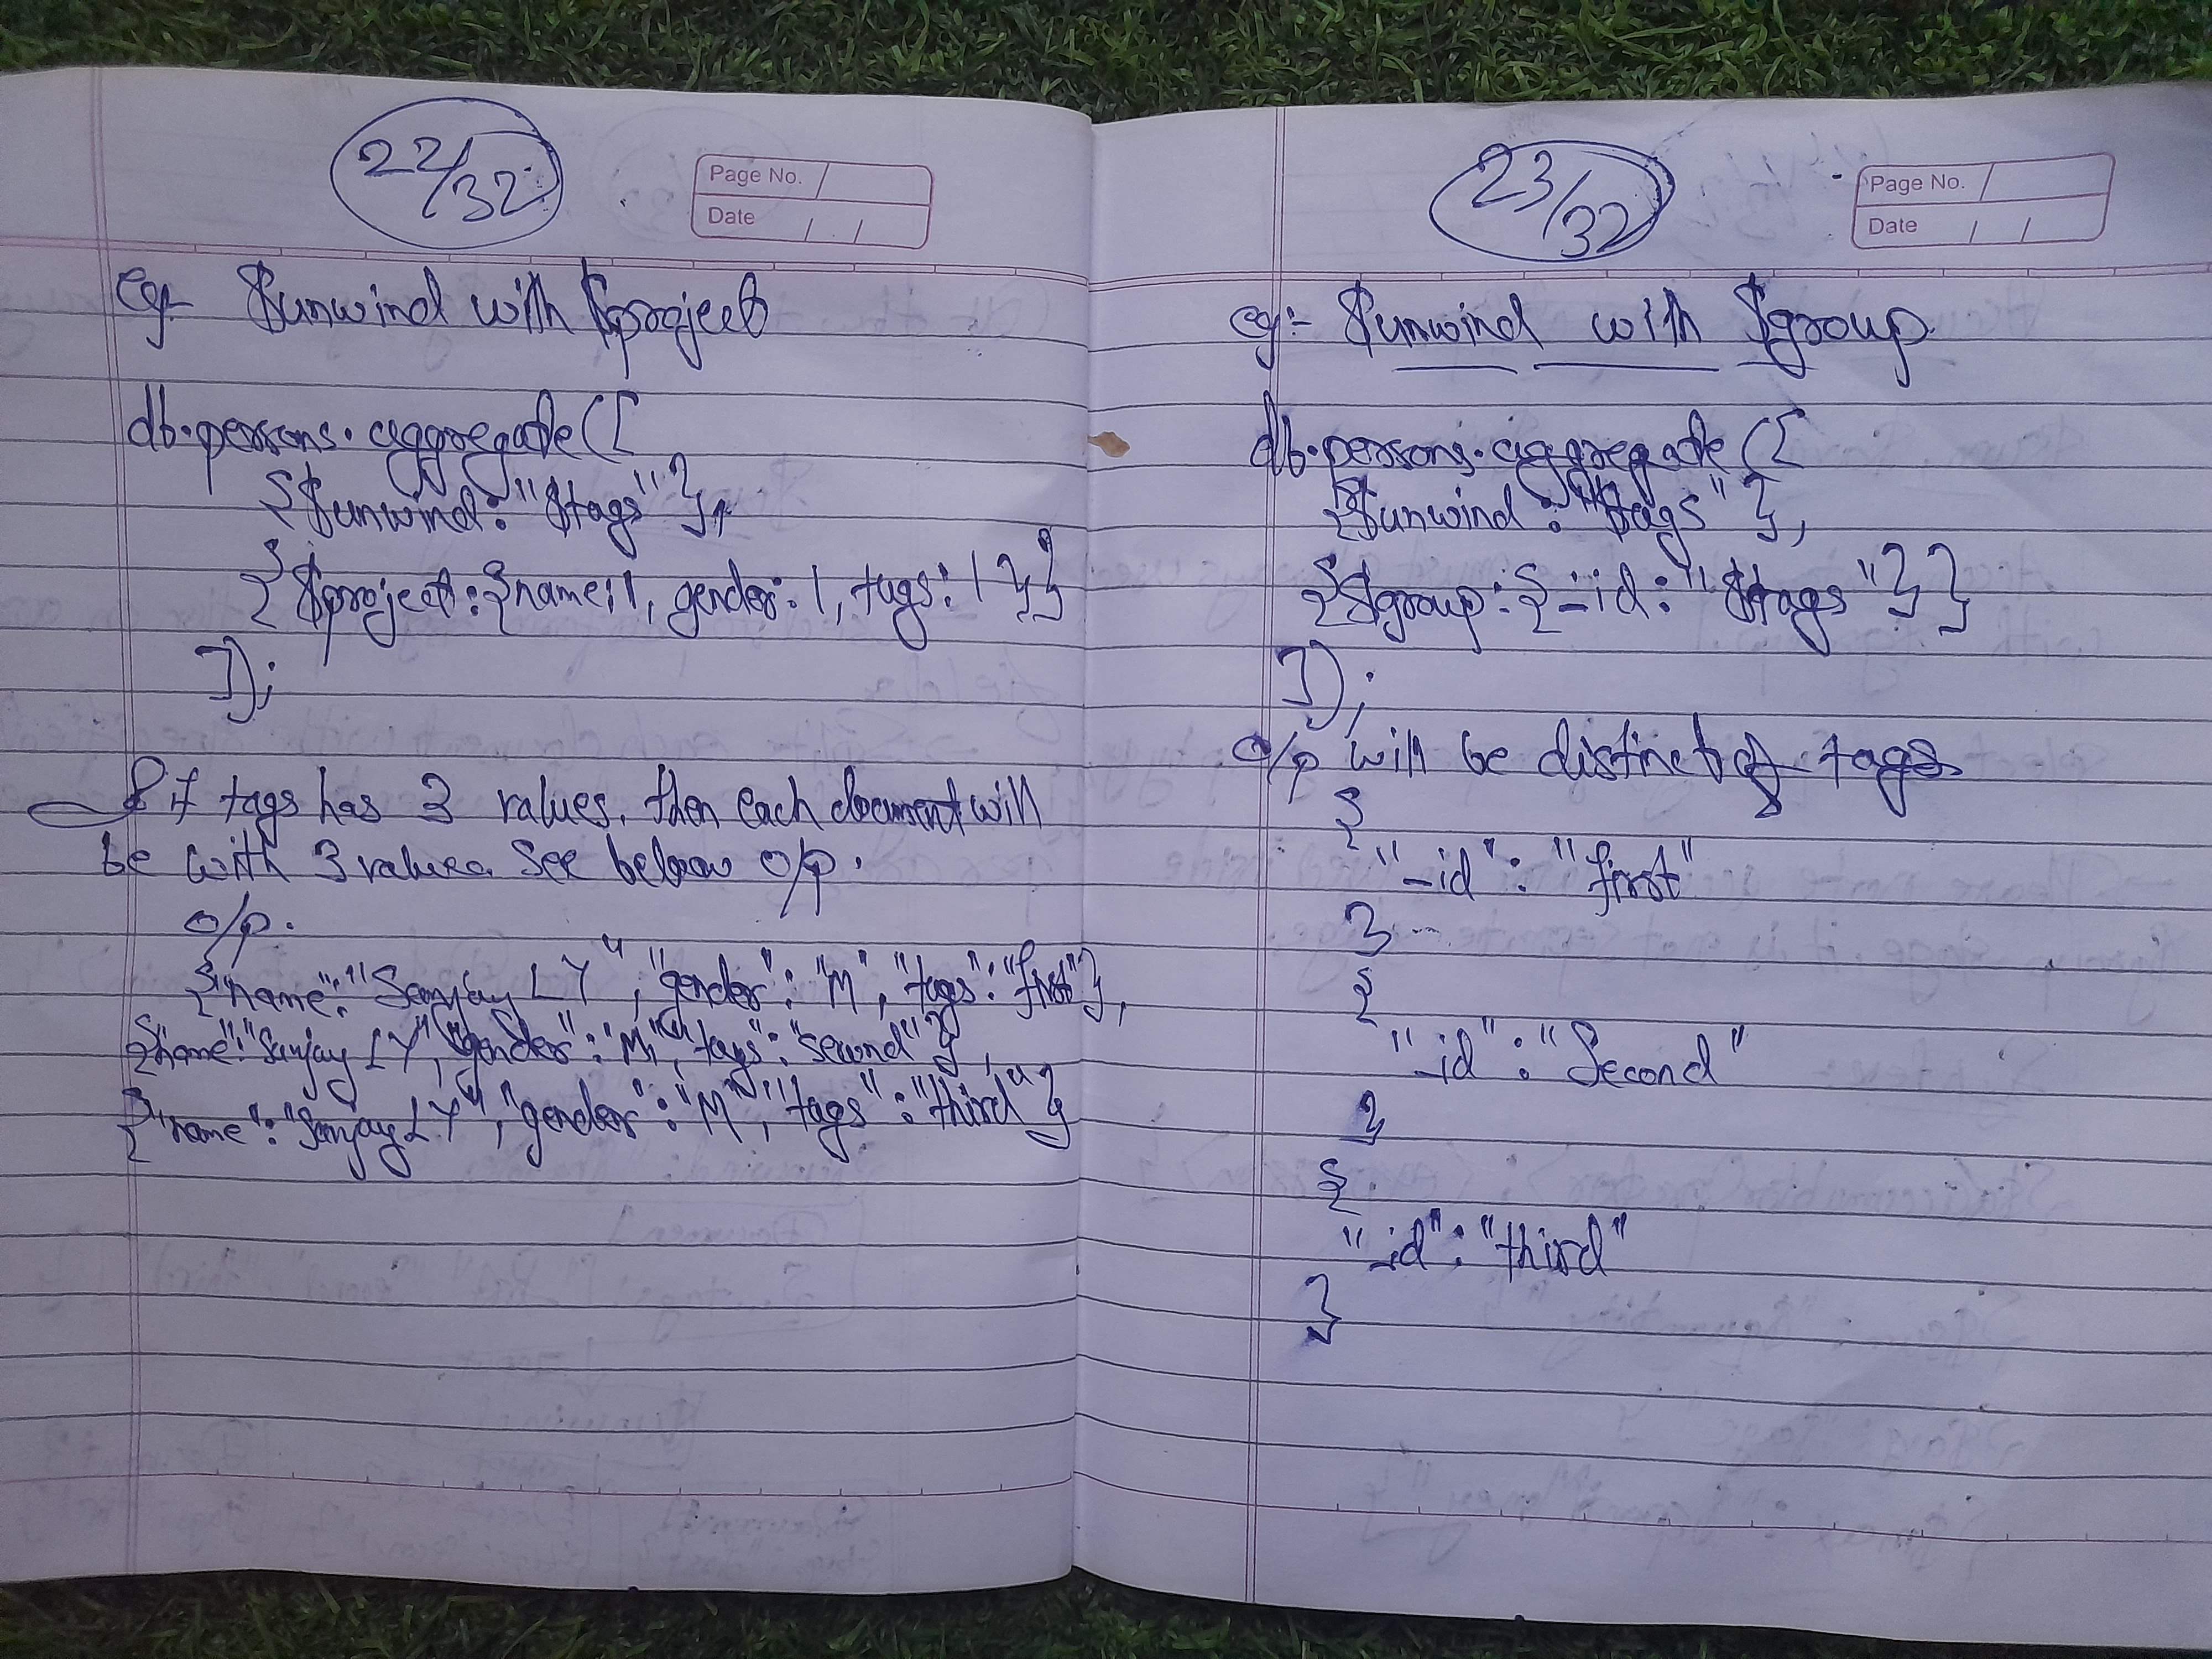 22/32
Page No.
Date / /
Eg:- $unwind with $project
db.persons.aggregate([
{$unwind: "$tags"},
{$project: {name:1, gender:1, tags:1}}
]);
If tags has 3 values, then each document will
be with 3 values. See below o/p.
o/p.
{"name": "Sanjay LY", "gender": "M", "tags": "first"},
{"name": "Sanjay LY", "gender": "M", "tags": "second"},
{"name": "Sanjay LY", "gender": "M", "tags": "third"}
23/32
Page No.
Date / /
eg:- $unwind with $group
db.persons.aggregate([
{$unwind: "$tags"},
{$group: {_id: "$tags"}}
]);
o/p will be distinct of tags
{
"_id": "first"
}
{
"_id": "Second"
}
{
"_id": "third"
}